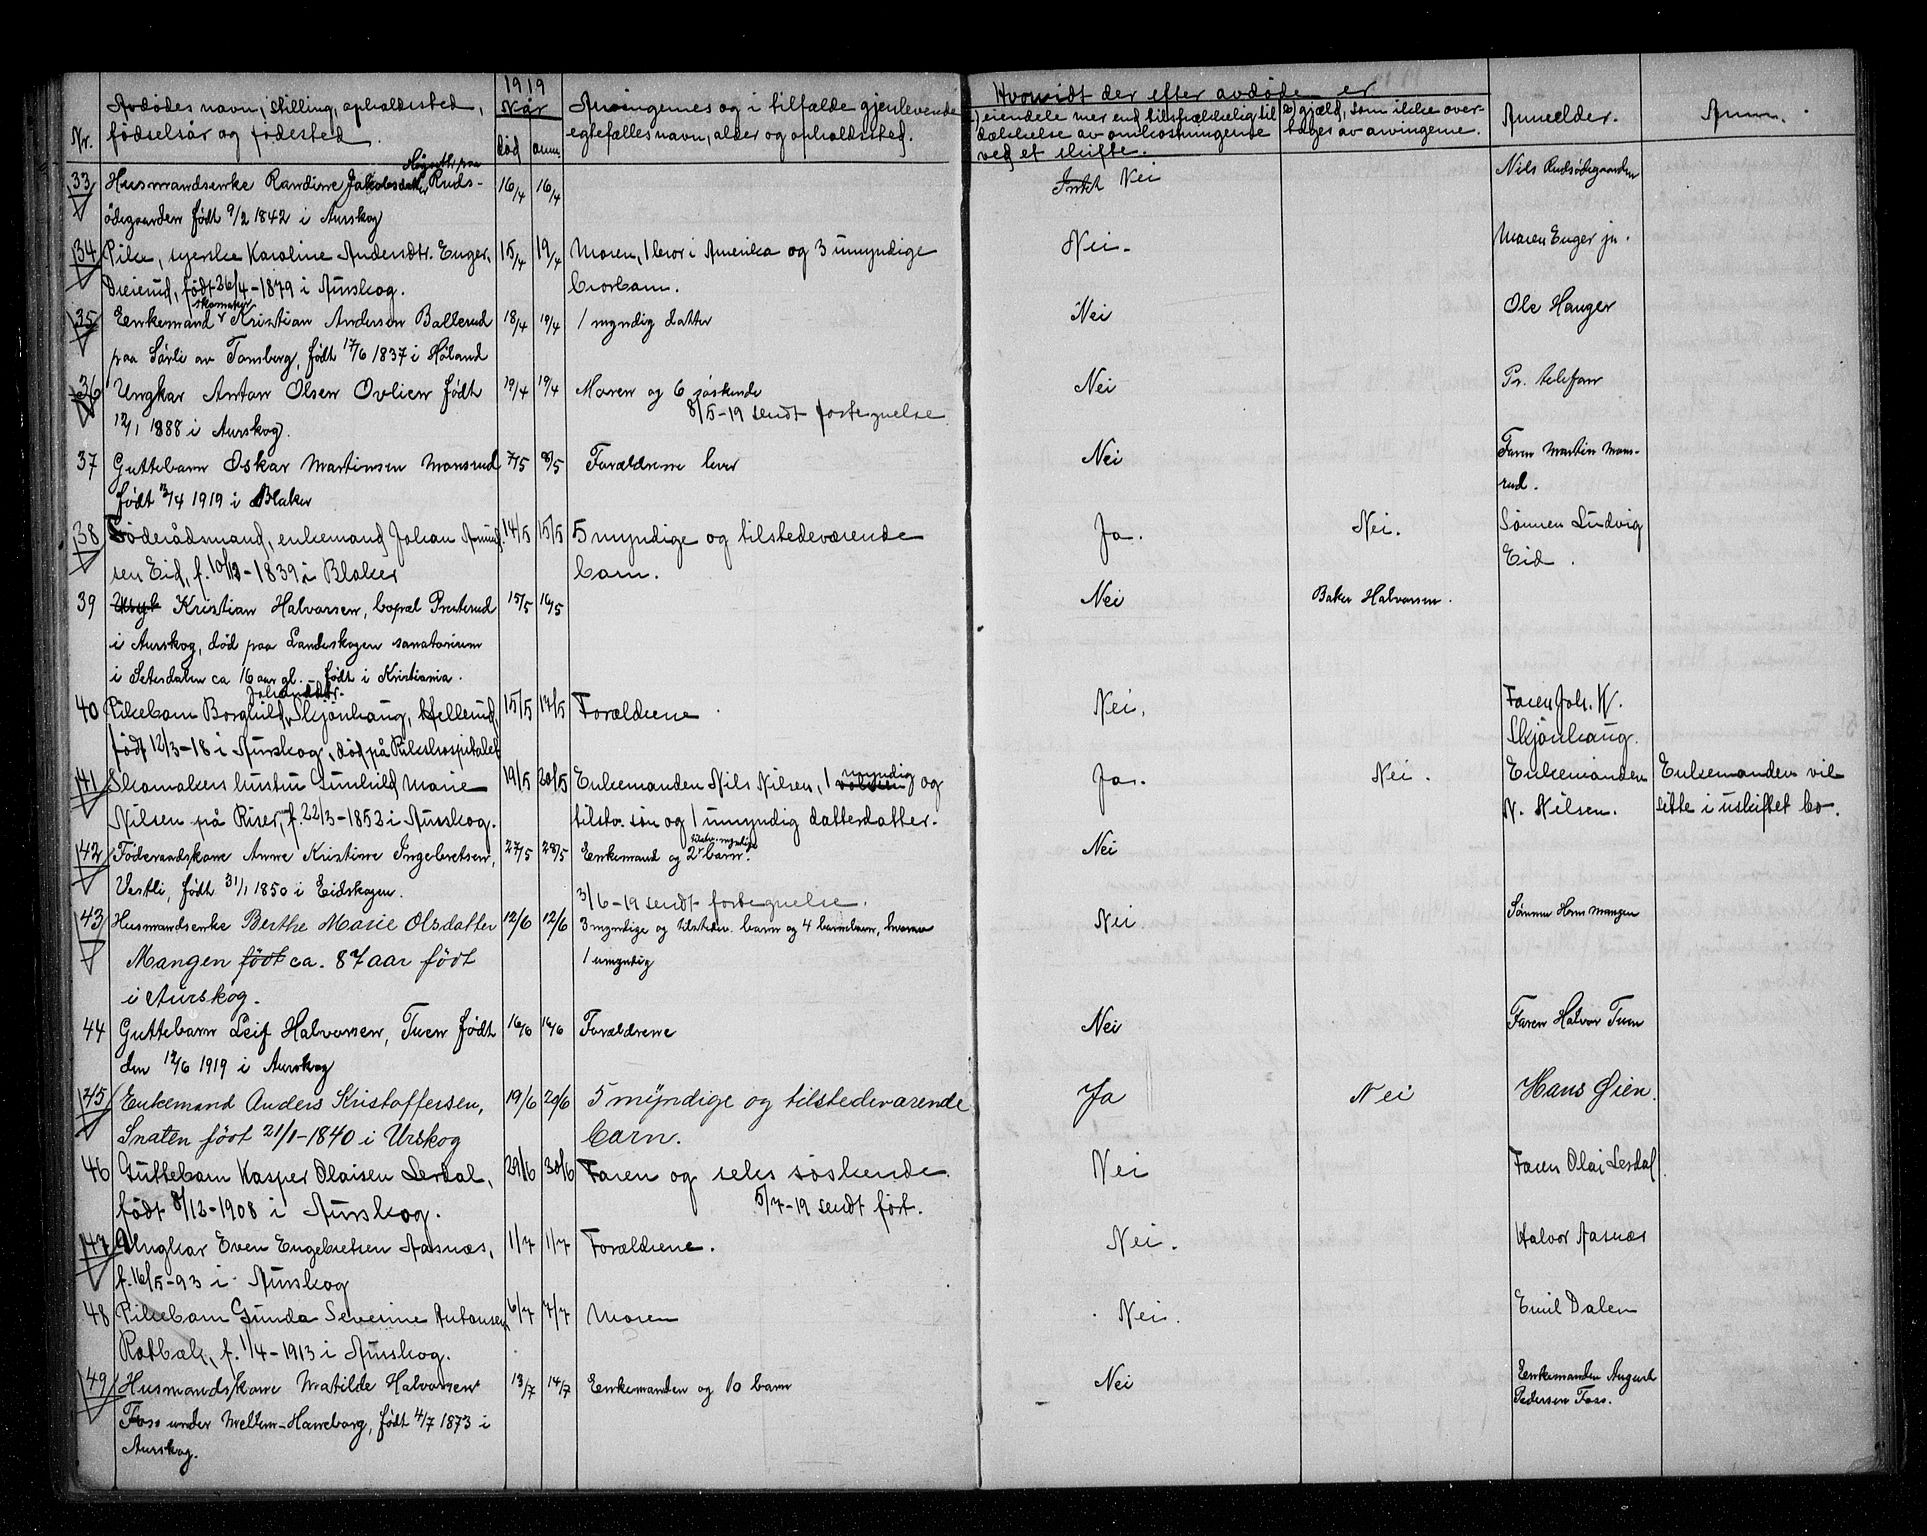 1919
Nr. Avdødes navn, stilling, opholdssted, fødselsår og fødested. Når død anm. Arvingenes og i tilfælde gjenlevende egtefælles navn, alder og opholdssted. Hvorvidt der efter avdøde er eiendele mer end tilstrækkelig til dækkelse av omkostningene ved et skifte. 2) gjæld, som ikke overtages av arvingerne. Anmelder. Anm.
33 Husmandsenke Randine Jakobsdatter, Ruds- 16/4 16/4 Nei Nils Rudsødegaarden
ødegaarden født 9/2 1842 i Aurskog
34 Pike, syerske Karoline Andersdtr. Enger, 15/4 19/4 Moren, 1 bror i Amerika og 3 umyndige Nei. Maren Enger jr.
Dreierud, født 26/4-1879 i Aurskog. brorbarn.
35 Enkemand skomaker Kristian Andersen Ballerud 18/4 19/4 1 myndig datter Nei Ole Hanger
paa Sørli av Tomberg, født 17/6 1837 i Høland
36 Ungkar Anton Olsen Ovlien født 19/4 19/4 Moren og 6 søskende Nei Pr. telefon
12/1 1888 i Aurskog. 8/5-19 sendt fortegnelse
37 Guttebarn Oskar Martinsen Monsrud 7/5 8/5 Forældrene lever Nei Faren Martin Mons-
født 3/4 1919 i Blaker rud.
38 Føderådsmand, enkemand Johan Amund- 14/5 15/5 5 myndige og tilstedeværende Ja. Nei. Sønnen Ludvig
sen Eid, f. 10/12-1839 i Blaker barn. Eid.
39 Kristian Halvorsen, bopæl Presterud 15/5 16/5 Nei Baker Halvorsen.
i Aurskog, død paa Landeskogen sanatorium
i Setesdalen ca 16 aar gl. - født i Kristiania.
40 Pikebarn Borghild Johansdtr. Skjønhaug, Hellerud, 15/5 17/5 Forældrene Nei. Faren Joh. K.
født 12/3-18 i Aurskog, død på Rikshospitalet Skjønhaug.
41 Skomakers hustru Gunhild Marie 19/5 20/5 Enkemanden Nils Nilsen, 1 voksen myndig og Ja. Nei. Enkemanden Enkemanden vil
Nilsen på Riser, f. 22/3-1852 i Aurskog. tilstv. søn og 1 umyndig datterdatter. N. Nilsen. sitte i uskiftet bo.
42 Føderaadskone Anne Kristine Ingebretsen, 27/5 28/5 Enkemand og 2 tilstv. myndige barn. Nei
Vestli, født 31/1 1850 i Eidskogen. 3/6-19 sendt fortegnelse.
43 Husmandsenke Berthe Marie Olsdatter 12/6 12/6 3 myndige og tilstedev. barn og 4 barnebarn, hvorav Nei. Sønnen Hans Mangen
Mangen født ca. 87 aar født 1 umyndig
i Aurskog.
44 Guttebarn Leif Halvorsen, Tuen født 16/6 16/6 Forældrene Nei Faren Halvor Tuen
den 12/6 1919 i Aurskog
45 Enkemand Anders Kristoffersen, 19/6 20/6 5 myndige og tilstedeværende Ja Nei Hans Øien.
Snaten født 21/1-1840 i Urskog barn.
46 Guttebarn Kasper Olaisen Lerdal, 29/6 30/6 Faren og seks søskende. Nei Faren Olai Lerdal.
født 8/12-1908 i Aurskog. 5/7-19 sendt fort.
47 Ungkar Even Engebretsen Aasnæs, 1/7 1/7 Forældrene. Nei. Halvor Aasnæs
f. 16/5-93 i Aurskog
48 Pikebarn Gunda Severine Antonsen 6/7 7/7 Moren Nei. Emil Dalen
Rotbæk, f. 1/4-1913 i Aurskog.
49 Husmandskone Matilde Halvorsen 13/7 14/7 Enkemanden og 10 barn Nei Enkemanden August
Foss under Mellem-Haneborg, født 4/7 1873 i Pedersen Foss.
Aurskog.